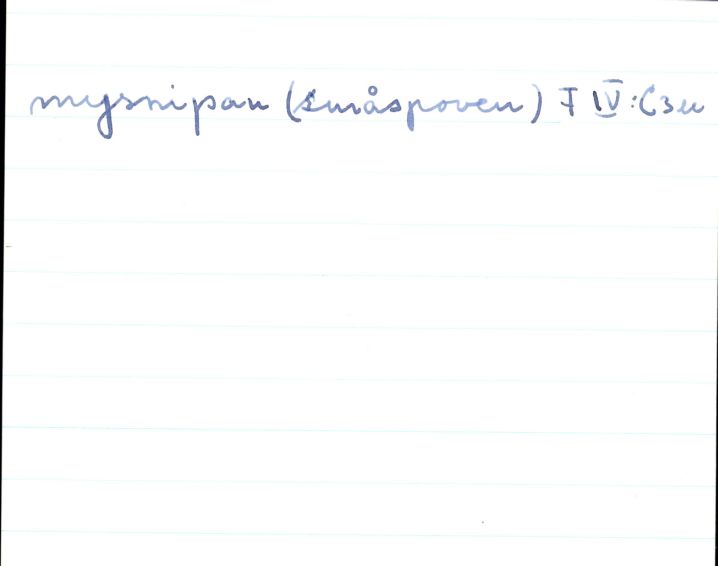 myrsnipan (småspoven) F IV:C3u